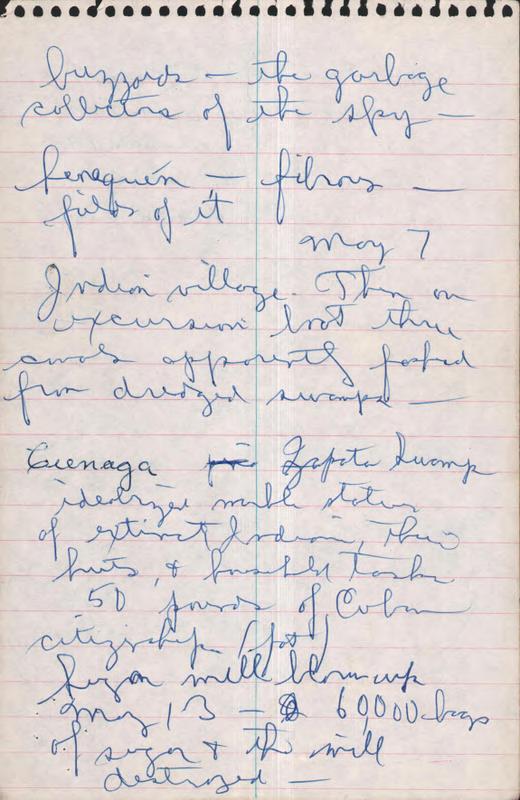 buzzards — the garbage
collectors of the sky —
henequén — fibrous —
fields of it
May 7
Indian village. Then on
excursion boat three
canals apparently
from dredged swamps —
Cienaga Zapata Swamp
idealized marble statues
of extinct Indians, their
huts, & household tasks
50 pounds of Cuban
citizenship (fat)
Sugar mill blown up
May 13 — 60,000 bags
of sugar & the mill
destroyed —